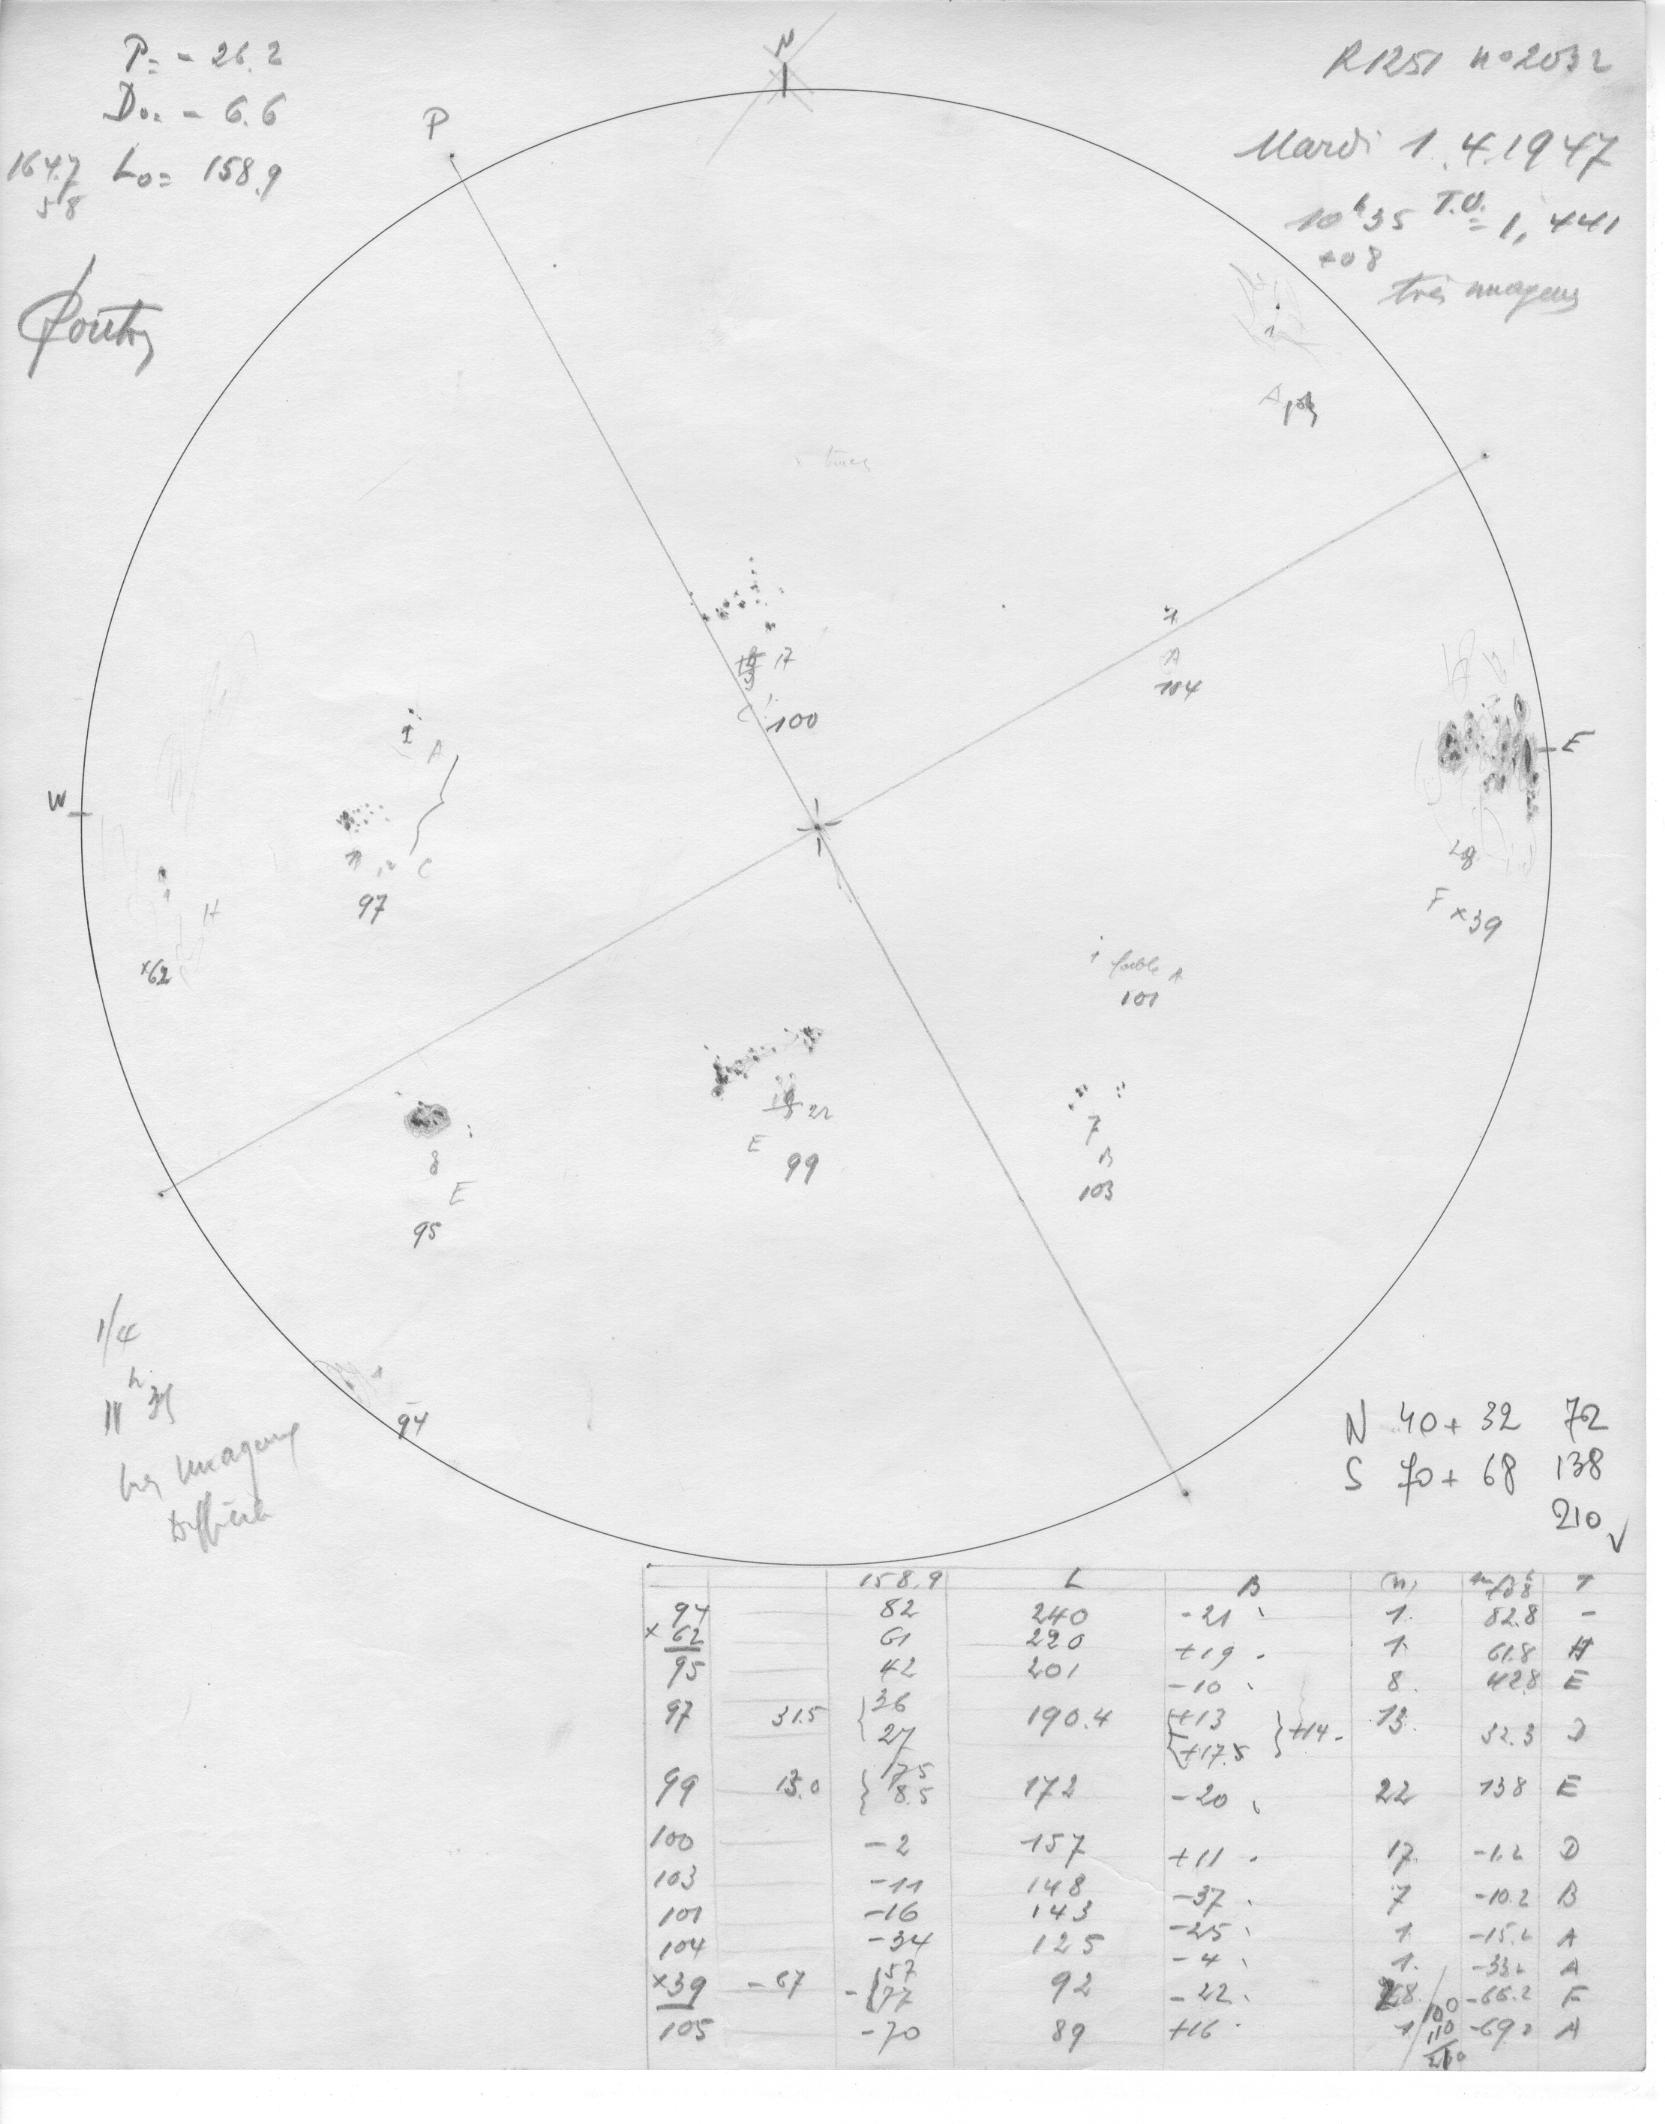 P = - 26.2
D₀ = - 6.6
164.7 L₀ = 158.9
5.8
N
P
R1251 n°2032
Mardi 1.4.1947
10h35 T.U. = 1,441
+08
très nuageux
1
A
17
C
100
1
A
104
1 A
W
E
11 12 C
97
1
H
×62
F ×39
1 faible A
101
22
E
99
7
B
103
8
E
95
1
94
1/4
très nuageux
Difficile
N 40 + 32 72
S 70 + 68 138
210 √
158.9 L B (n) T
94 82 240 -21 1. 82.8 -
×62 61 220 +19 1. 61.8 H
95 42 201 -10 8. 42.8 E
97 31.5 { 36 190.4 { +13 } +14 13. 32.3 D
27 +17.5
99 13.0 { 17.5 172 -20 22 13.8 E
8.5
100 -2 157 +11 17. -1.2 D
103 -11 148 -37 7 -10.2 B
101 -16 143 -25 1 -15.2 A
104 -34 125 -4 1. -33.2 A
×39 -67 -{ 57 92 -22 -66.2 F
77
105 -70 89 +16 1 -69.2 A
100
110
210